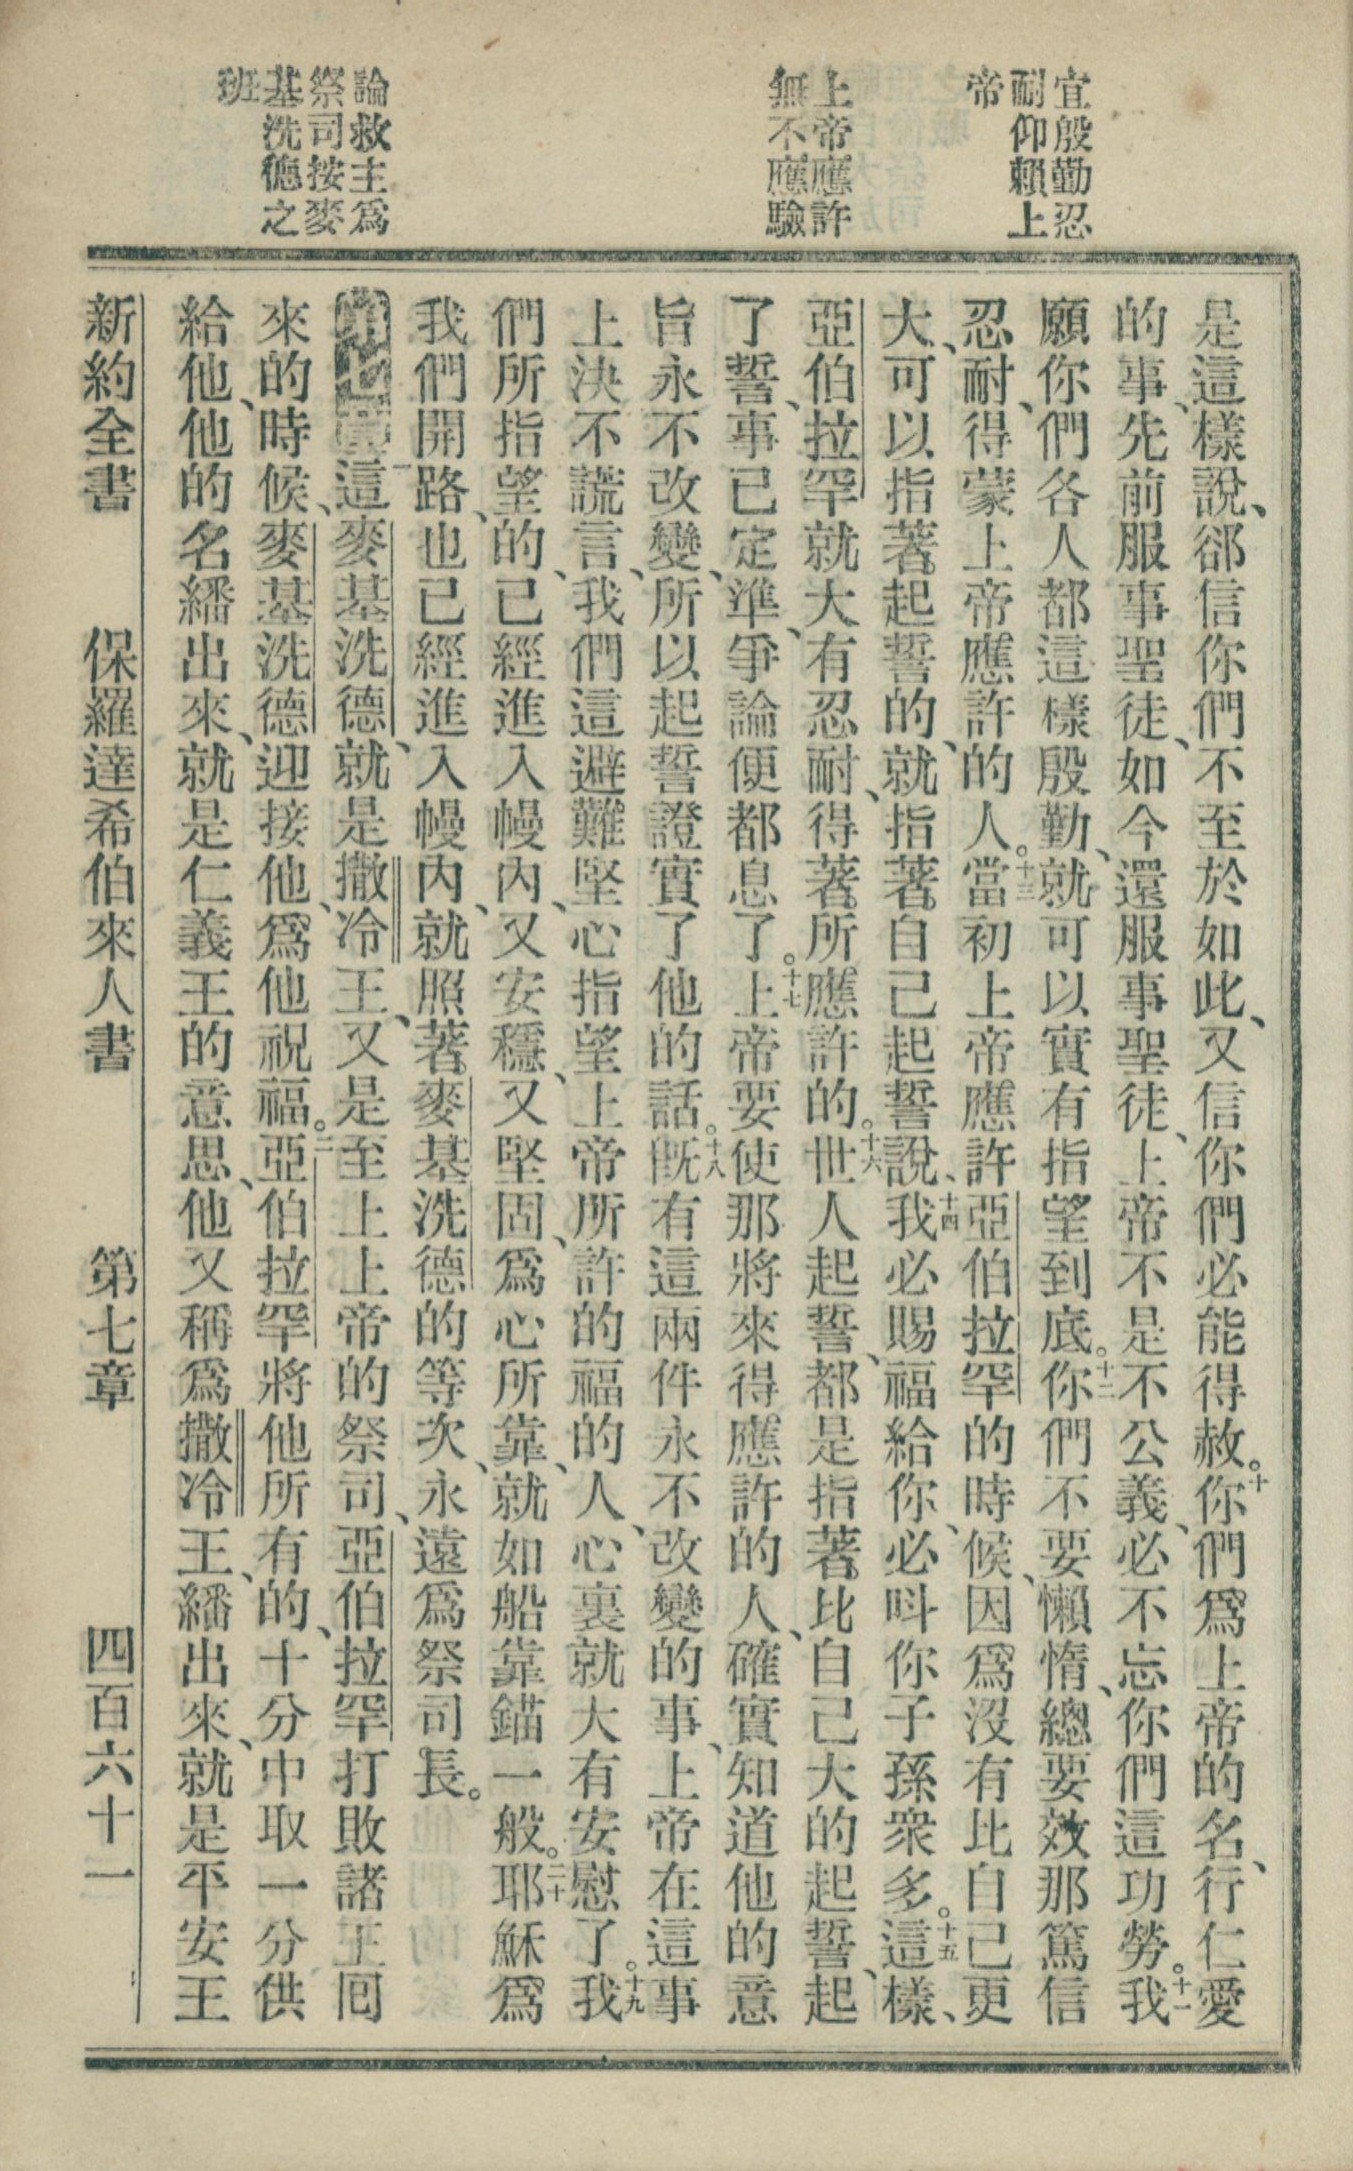 宜殷勤忍
耐仰賴上
帝
上帝應許
無不應驗
論救主爲
祭司按麥
基洗德之
班
是這樣說、郤信你們不至於如此、又信你們必能得赦。十你們爲上帝的名、行仁愛
的事、先前服事聖徒、如今還服事聖徒、上帝不是不公義、必不忘你們這功勞。十一我
願你們各人都這樣殷勤、就可以實有指望到底。十二你們不要懶惰、總要效那篤信
忍耐、得蒙上帝應許的人。十三當初上帝應許亞伯拉罕的時候、因爲沒有比自己更
大、可以指著起誓的、就指著自己起誓說、十四我必賜福給你、必呌你子孫衆多。十五這樣、
亞伯拉罕就大有忍耐、得著所應許的。十六世人起誓、都是指著比自己大的起誓、起
了誓、事已定準、爭論便都息了。十七上帝要使那將來得應許的人、確實知道他的意
旨永不改變、所以起誓證實了他的話。十八旣有這兩件永不改變的事、上帝在這事
上決不謊言、我們這避難堅心指望上帝所許的福的人、心裏就大有安慰了。十九我
們所指望的、已經進入幔內、又安穩、又堅固、爲心所靠、就如船靠錨一般。二十耶穌爲
我們開路、也已經進入幔內、就照著麥基洗德的等次、永遠爲祭司長。
第七章一這麥基洗德、就是撒冷王、又是至上上帝的祭司、亞伯拉罕打敗諸王囘
來的時候、麥基洗德迎接他、爲他祝福。二亞伯拉罕將他所有的、十分中取一分供
給他、他的名繙出來、就是仁義王的意思、他又稱爲撒冷王、繙出來、就是平安王
新約全書　保羅達希伯來人書　第七章　四百六十一